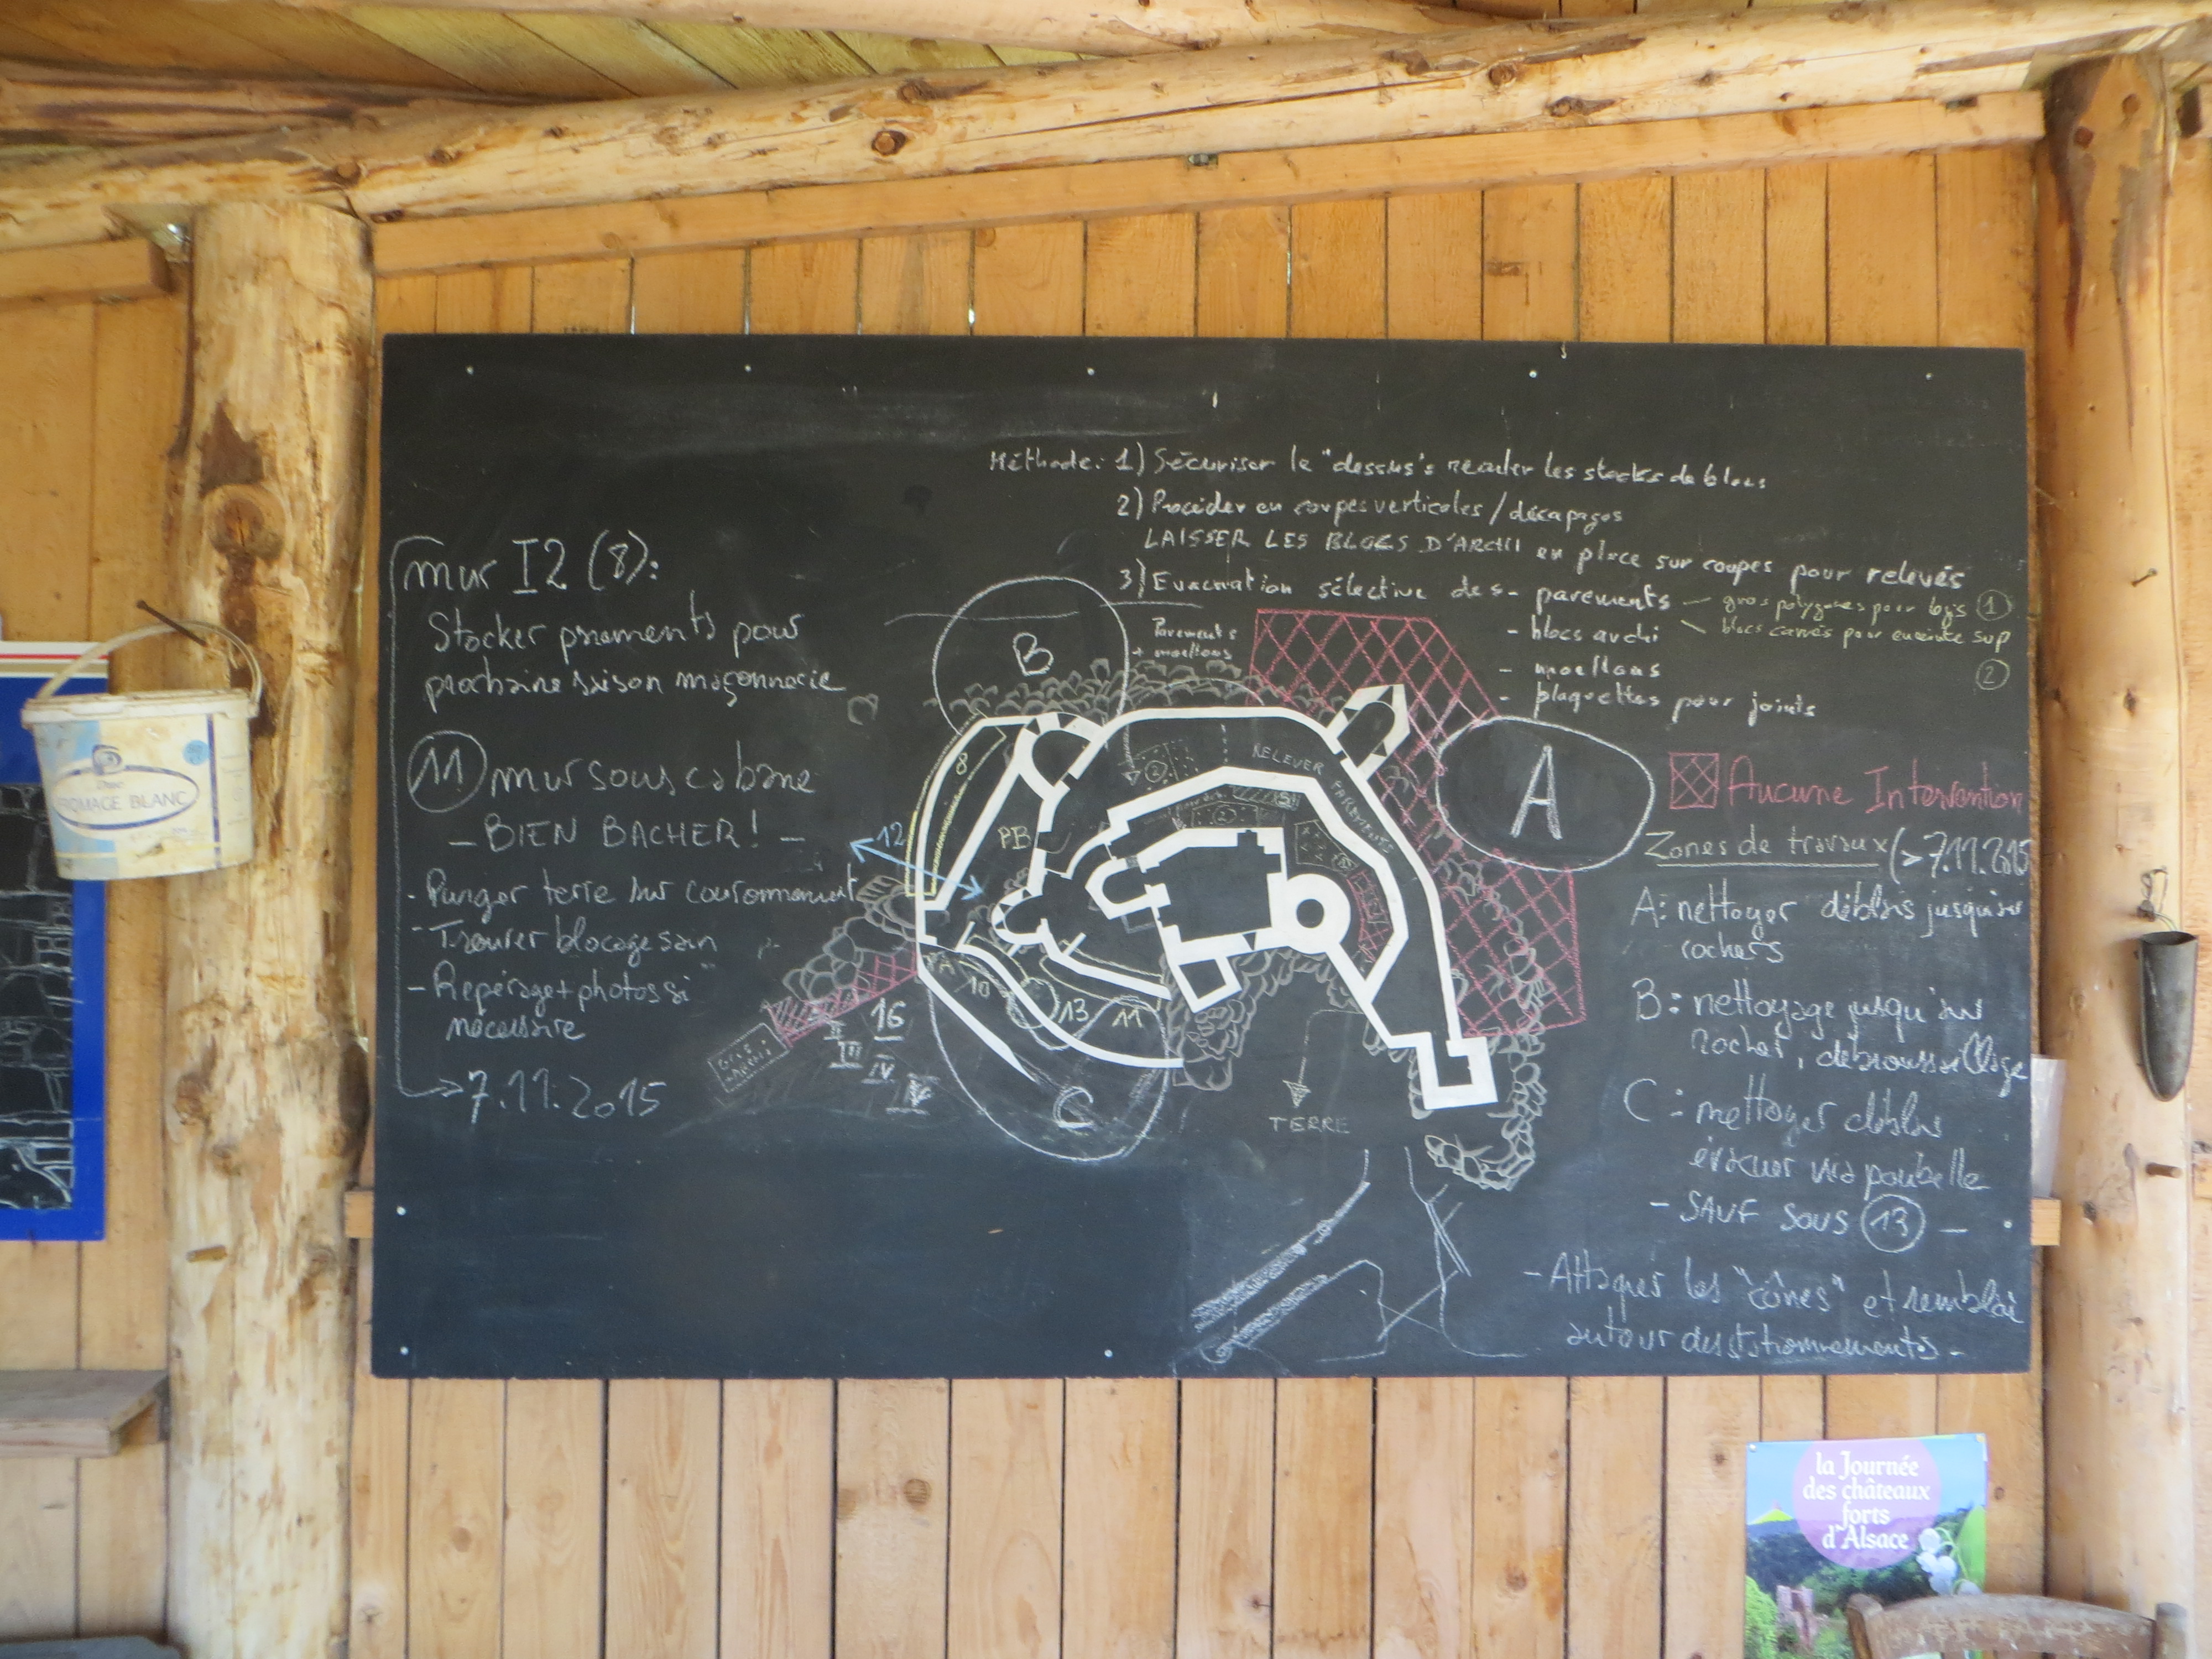 Méthode: 1) Sécuriser le "dessus": reculer les stocks de blocs
2) Procéder en coupes verticales / décapages
LAISSER LES BLOCS D'ARCHI en place sur coupes pour relevés
3) Evacuation sélective des - parements - gros polygones pour logis 1
- blocs archi \ blocs carrés pour enceinte sup 2
- moellons
- plaquettes pour joints
mur I2 (8):
Stocker parements pour
prochaine saison maçonnerie
11 mur sous cabane
- BIEN BACHER! -
- Purger terre sur couronnement
- Trouver blocage sain
- Repérage + photos si
nécessaire
7.11.2015
B
Parements
+ moellons
A
RELEVER PAREMENTS
8
12
PB
2
2
10
13
11
16
II
III
IV
V
C
TERRE
Aucune Intervention
Zones de travaux (> 7.11.2015
A: nettoyer déblais jusqu'au
rochers
B: nettoyage jusqu'au
rocher, débroussaillage
C: nettoyer déblais
évacuer via poubelle
- SAUF SOUS 13 -
- Attaquer les "cônes" et remblai
autour du stationnements -
FROMAGE BLANC
la Journée
des châteaux
forts
d'Alsace